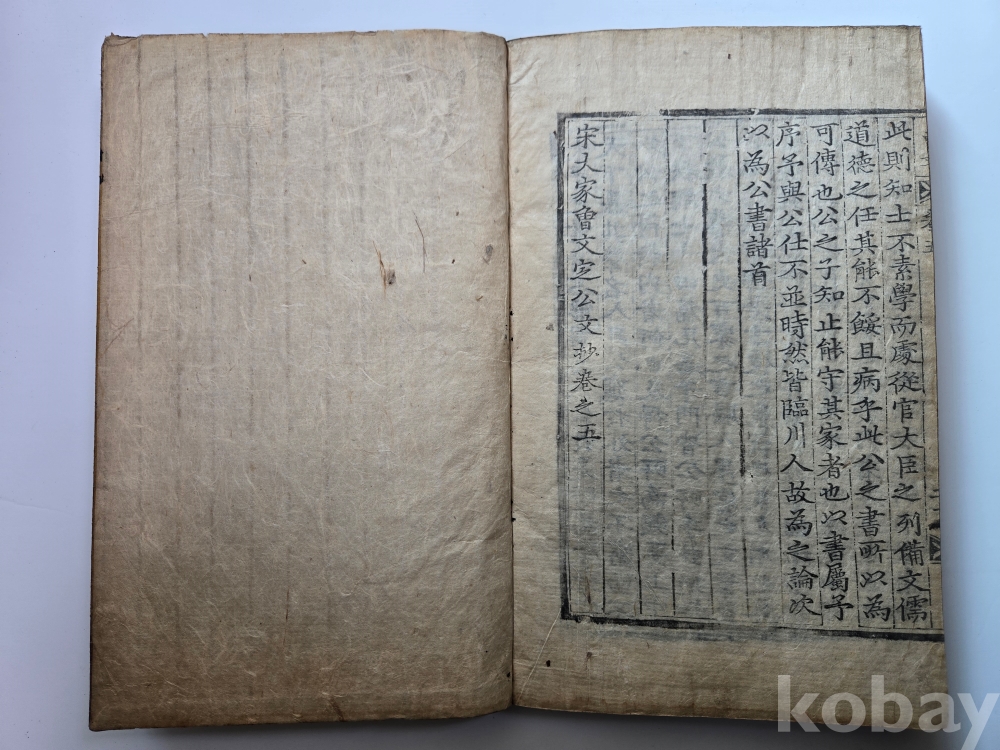 此則知士不素學而處從官大臣之列備文儒
道德之任其能不餒且病乎此公之書所以為
可傳也公之子知止能守其家者也以書屬予
序予與公仕不並時然皆臨川人故為之論次
以為公書諸首
宋大家曾文定公文抄卷之五
kobay